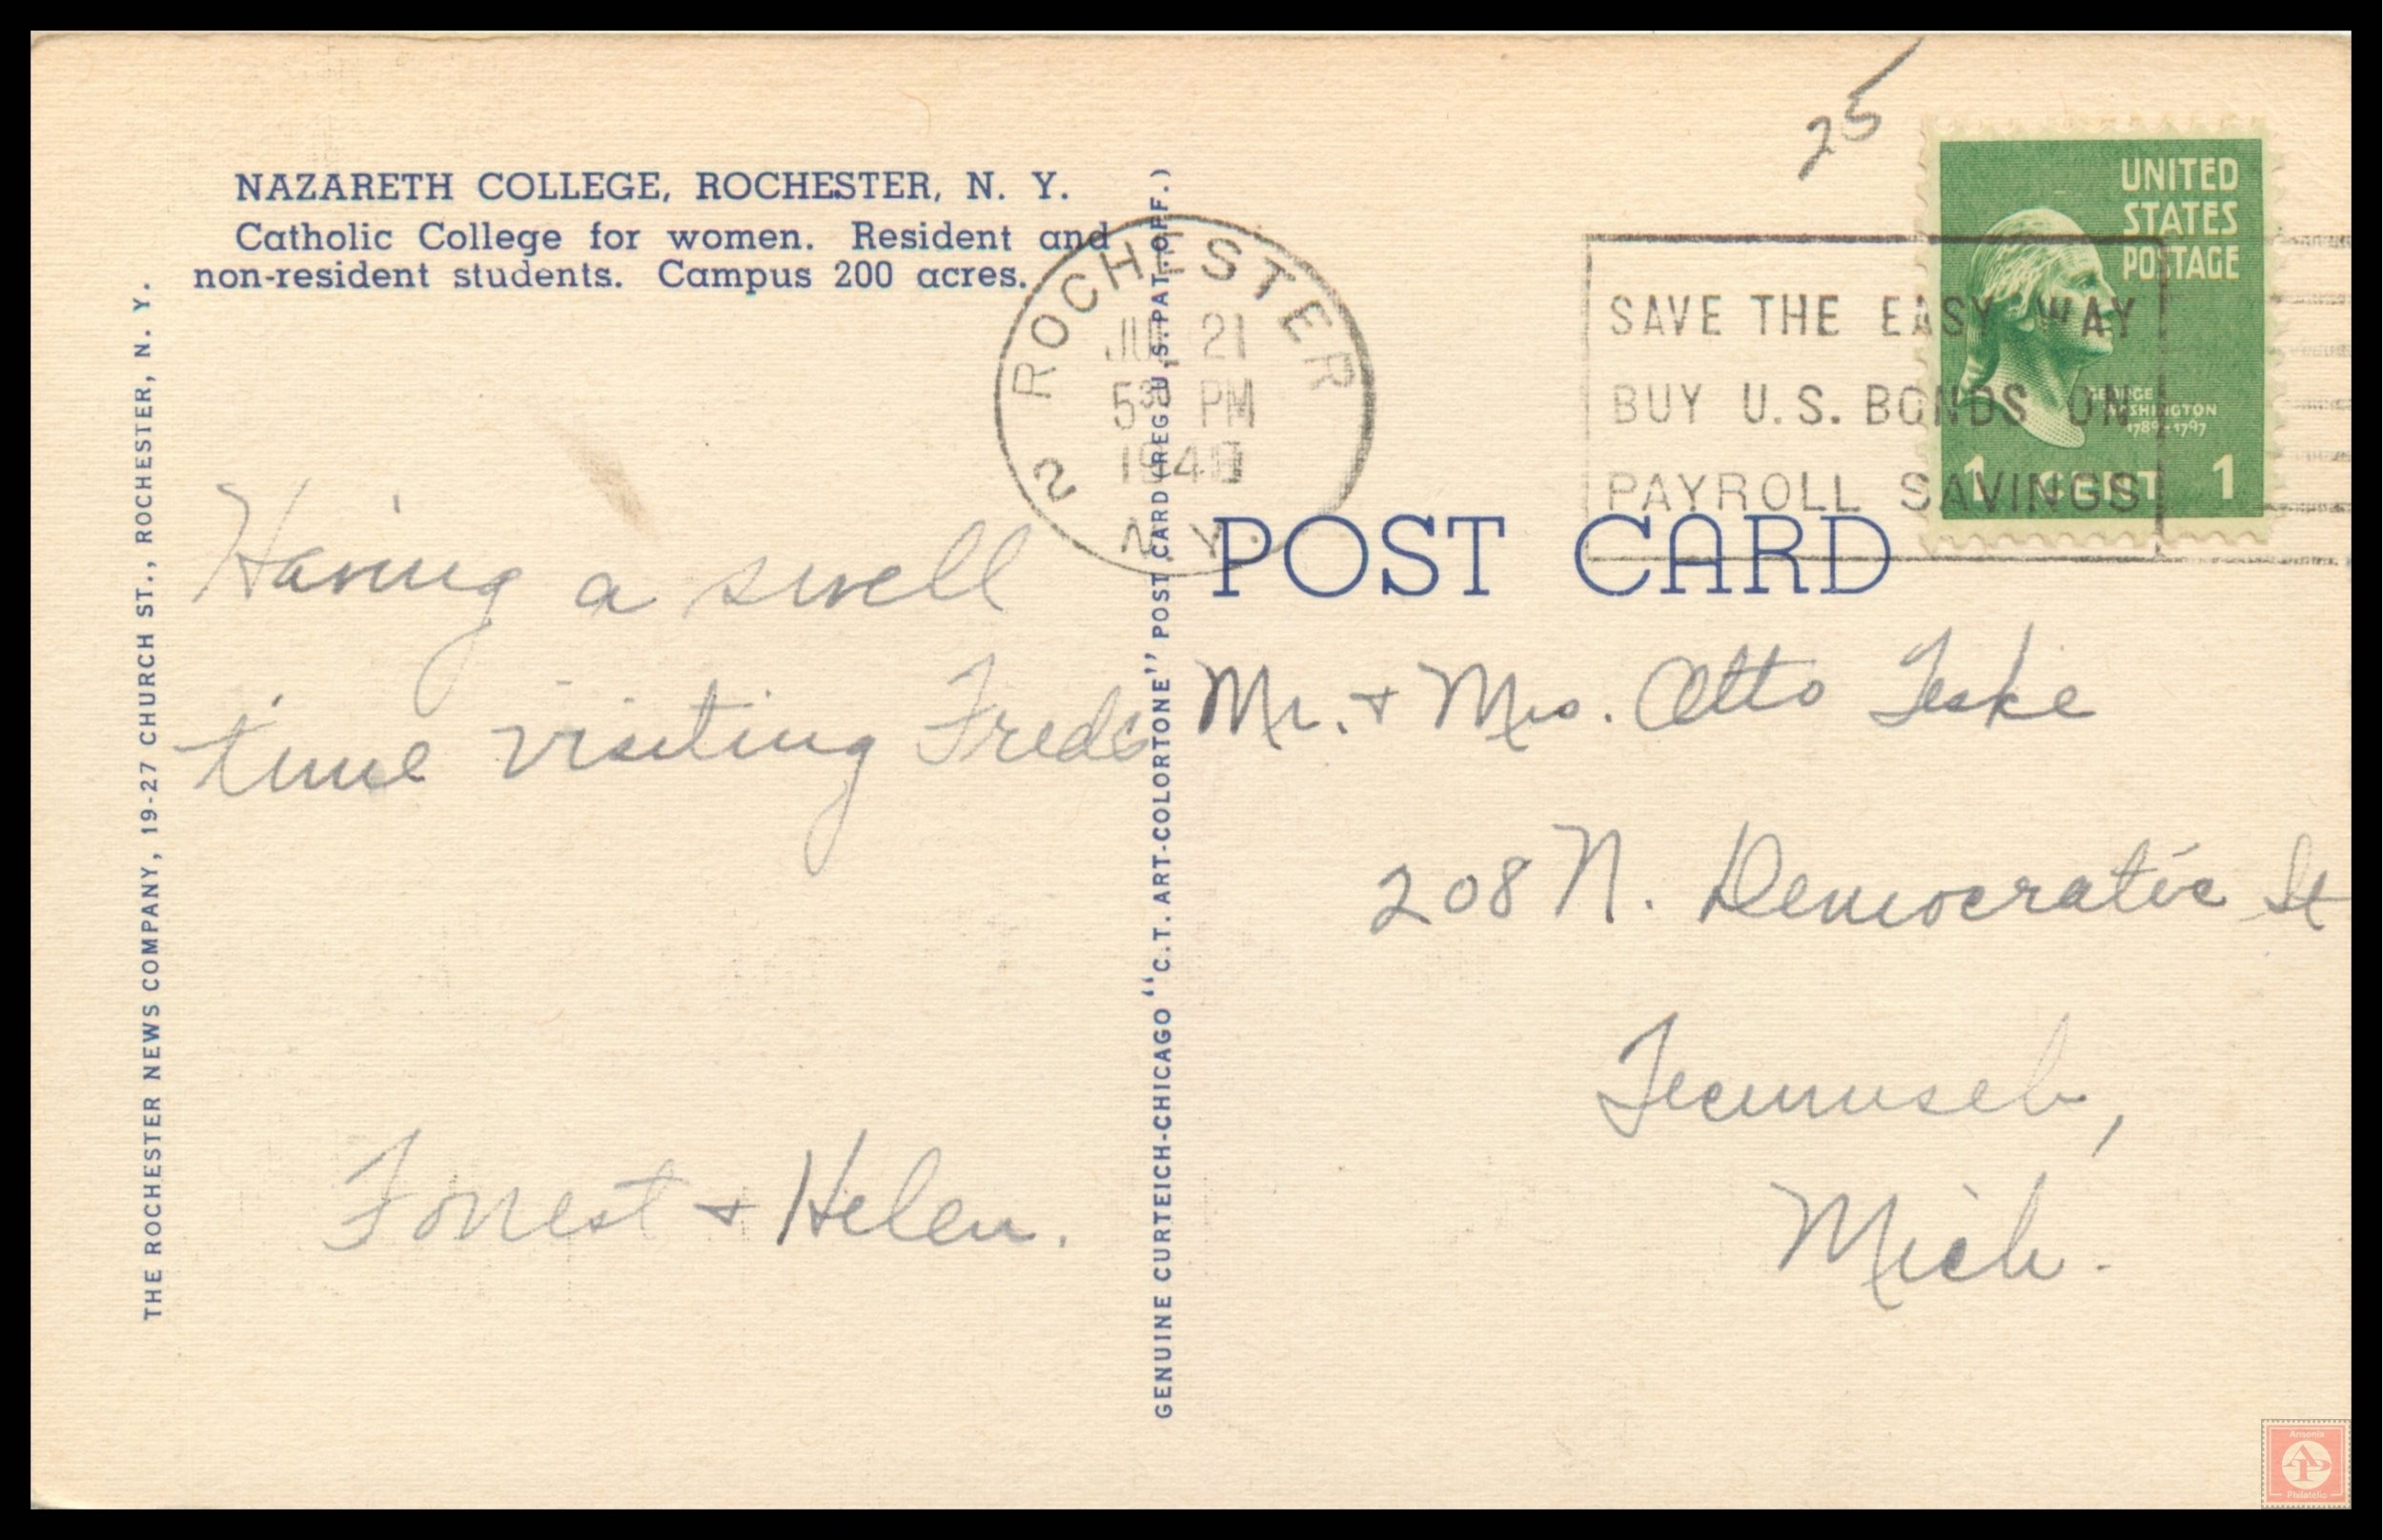 25
NAZARETH COLLEGE, ROCHESTER, N. Y.
Catholic College for women. Resident and
non-resident students. Campus 200 acres.
THE ROCHESTER NEWS COMPANY, 19-27 CHURCH ST., ROCHESTER, N. Y.
Having a swell
time visiting Freds
Forrest + Helen.
GENUINE CURTEICH-CHICAGO "C.T. ART-COLORTONE" POST CARD (REG. U.S. PAT. OFF.)
ROCHESTER 2
JUL 21
5 30 PM
N.Y.
SAVE THE EASY WAY
BUY U.S. BONDS ON
PAYROLL SAVINGS
UNITED
STATES
POSTAGE
GEORGE
WASHINGTON
1789-1797
1 CENT 1
POST CARD
Mr. + Mrs. Otto Teske
208 N. Democratic St
Tecumseh,
Mich.
Ansonia
AP
Philatelic